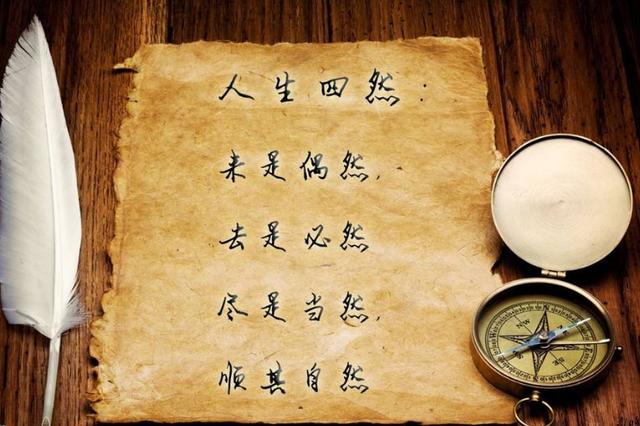 人生四然：
来是偶然，
去是必然
尽是当然，
顺其自然
NW
SE